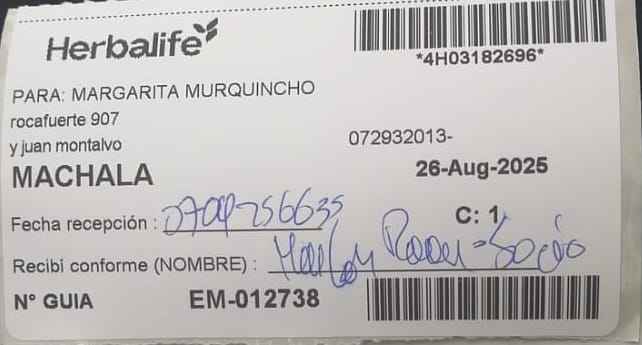 Herbalife
*4H03182696*
PARA: MARGARITA MURQUINCHO
rocafuerte 907
y juan montalvo
072932013-
MACHALA
26-Aug-2025
Fecha recepción : 0704756635
C: 1
Recibi conforme (NOMBRE) :
N° GUIA EM-012738